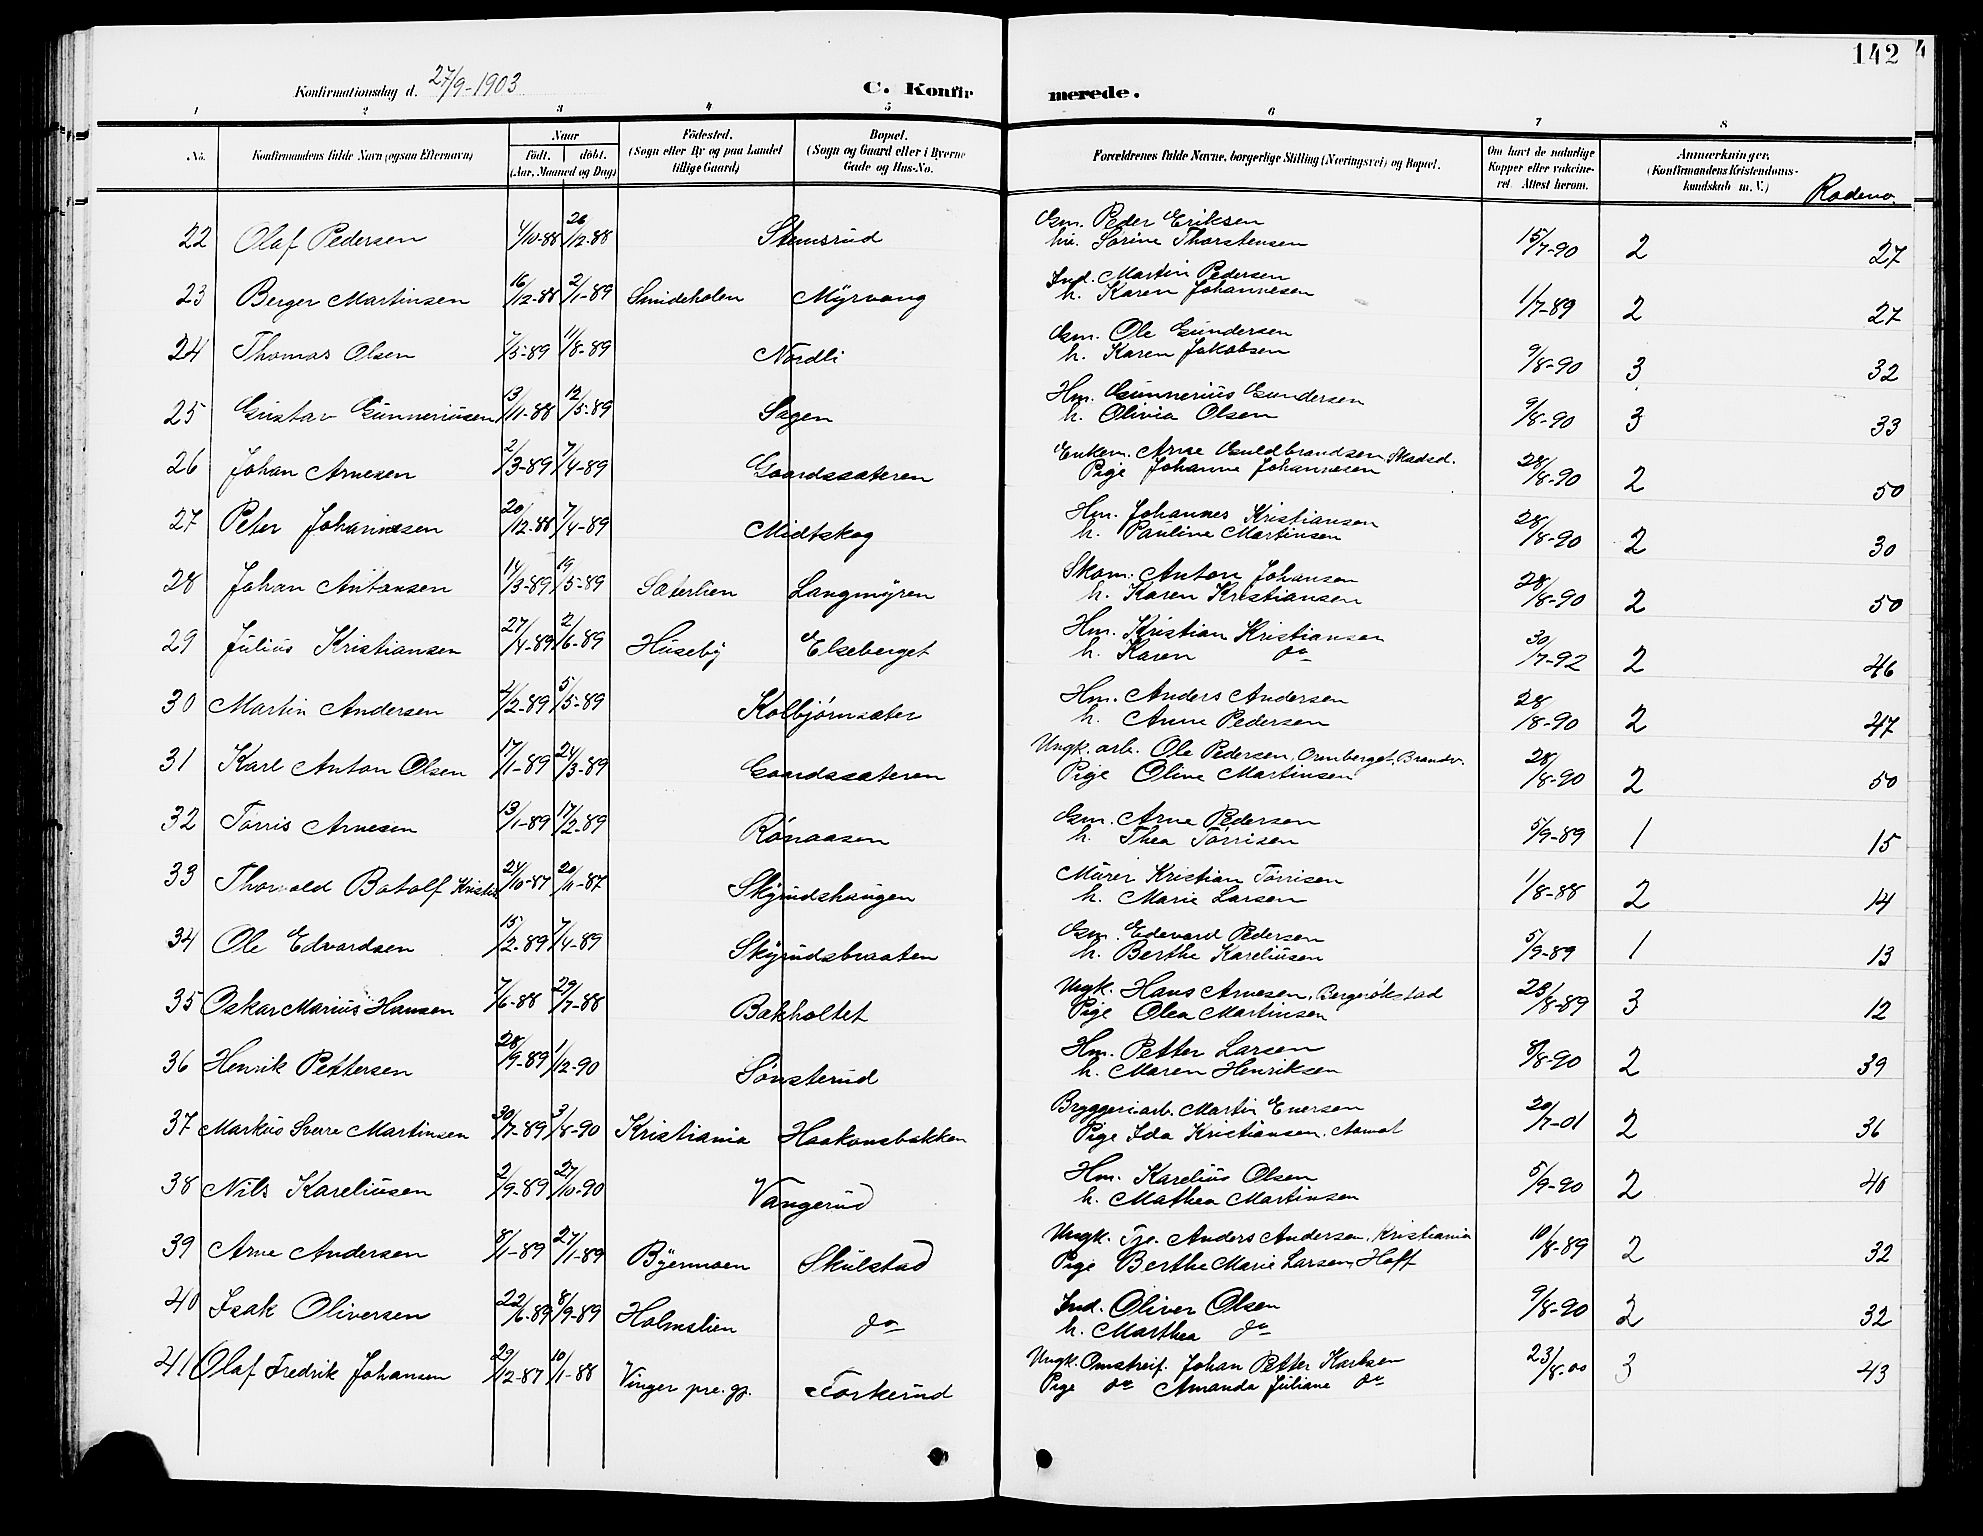 142
Konfirmationsdag d. 27/9-1903
C. Konfirmerede.
1 2 3 4 5 6 7 8
No. Konfirmandens fulde Navn (ogsaa Efternavn) Naar født. døbt. (Aar, Maaned og Dag) Fødested. (Sogn eller By og paa Landet tillige Gaard) Bopæl. (Sogn og Gaard eller i Byerne Gade og Hus-No. Forældrenes fulde Navne, borgerlige Stilling (Næringsvei) og Bopæl. Om havt de naturlige Kopper eller vaccineret. Attest herom. Anmærkninger. (Konfirmandens Kristendomskundskab m. V.) Rodeno.
22 Olaf Pedersen 4/10-88 26/12-88 Stemsrud Gm. Peder Eriksen
hu. Sørine Thorstensen 15/7-90 2 27
23 Berger Martinsen 16/12-88 2/1-89 Smideholen Myrvang Ind. Martin Pedersen
h. Karen Johannesen 1/7-89 2 27
24 Thomas Olsen 7/5-89 11/8-89 Nordli Gm. Ole Gundersen
h. Karen Jakobsen 9/8-90 3 32
25 Gustav Gunneriusen 13/11-88 12/5-89 Sagen Hm. Gunnerius Gundersen
h. Olivia Olsen 9/8-90 3 33
26 Johan Arnesen 2/3-89 7/4-89 Gaardssæteren Enkem. Arne Guldbrandsen, Skadsd.
Pige Johanne Johannesen 28/8-90 2 50
27 Peter Johannesen 20/12-88 7/4-89 Midtskog Hm. Johannes Kristiansen
h. Pauline Martinsen 28/8-90 2 30
28 Johan Antonsen 14/3-89 19/5-89 Sæterlien Langmyren Skom. Anton Johansen
h. Karen Kristiansen 28/8-90 2 50
29 Julius Kristiansen 27/4-89 2/6-89 Huseby Elseberget Hm. Kristian Kristiansen
h. Karen do 30/7-92 2 46
30 Martin Andersen 2/2-89 5/5-89 Kolbjørnsæter Hm. Anders Andersen
h. Anne Pedersen 28/8-90 2 47
31 Karl Anton Olsen 17/1-89 24/3-89 Gaardssæteren Ungk. arb. Ole Pedersen, Ormberget, Brandv.
Pige Oline Martinsen 28/8-90 2 50
32 Tørris Arnesen 13/1-89 17/2-89 Rønaasen Gm. Arne Pedersen
h. Thea Tørrisen 5/9-89 1 15
33 Thorvald Botolf 24/10-87 20/11-87 Skyrudshaugen Murer Kristian Tørrisen
h. Marie Larsen 1/8-88 2 14
34 Ole Edvardsen 15/2-89 7/4-89 Skyrudsbraaten Gm. Edevard Pedersen
h. Berthe Kareliusen 5/9-89 1 13
35 Oskar Marius Hansen 7/6-88 29/7-88 Bakholtet Ungk. Hans Arnesen, Bergerøkstad
Pige Olea Martinsen 28/8-89 3 12
36 Henrik Pettersen 28/9-89 1/12-90 Sønsterud Hm. Petter Larsen
h. Maren Henriksen 8/8-90 2 39
37 Markus Sverre Martinsen 30/7-89 3/8-90 Kristiania Haakonsbakken Bryggeriarb. Martin Enersen
Pige Ida Kristiansen, Aamot 20/7-01 2 36
38 Nils Kareliusen 2/9-89 27/10-90 Vangerud Hm. Karelius Olsen
h. Mathea Martinsen 5/9-90 2 40
39 Arne Andersen 8/1-89 27/1-89 Byermoen Skulstad Ungk. Tje. Anders Andersen, Kristiania
Pige Berthe Marie Larsen, Hoff 10/8-89 2 32
40 Isak Oliversen 22/6-89 8/9-89 Holmslien do Ind. Oliver Olsen
h. Marthea do 9/8-90 2 32
41 Olaf Fredrik Johansen 29/12-87 10/1-88 Vinger pre.gj. Torkerud Ungk. Omstreif. Johan Petter Karlsen
Pige do Amanda Juliane do 23/8-00 3 43